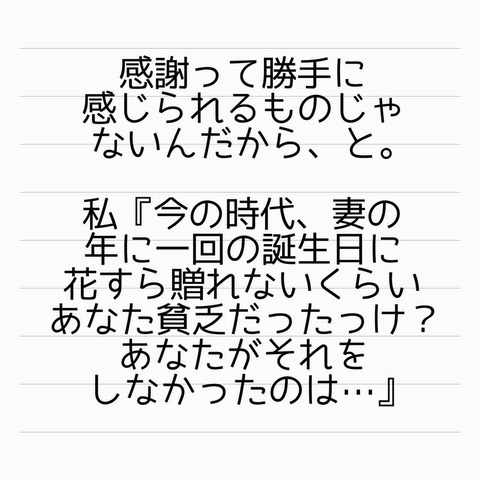 感謝って勝手に
感じられるものじゃ
ないんだから、と。
私『今の時代、妻の
年に一回の誕生日に
花すら贈れないくらい
あなた貧乏だったっけ？
あなたがそれを
しなかったのは…』